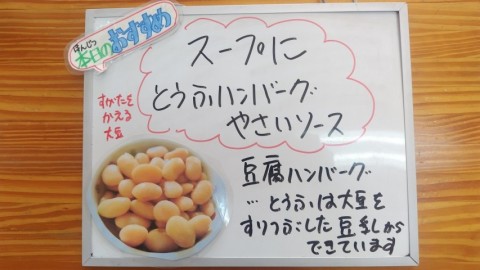 ほんじつ
本日のおすすめ
スープに
とうふハンバーグ
やさいソース
すがたを
かえる
大豆
豆腐ハンバーグ
…とうふは大豆を
すりつぶした豆乳から
できています